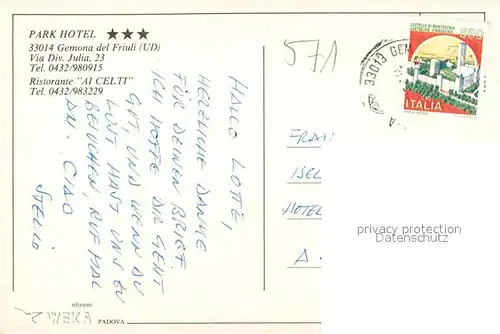 PARK HOTEL ★★★
33014 Gemona del Friuli (UD)
Via Div. Julia, 23
Tel. 0432/980915
Ristorante "AI CELTI"
Tel. 0432/983229
HALLO LOTTE,
HERZLICHE DANKE
FÜR DEINEN BRIEF.
ICH HOFFE DIR GEHT
GUT, UND WENN DU
LUST HAST UNS ZU
BESUCHEN, RUF MAL
AN. CIAO
STELLIO
edizioni
WEKA
PADOVA
571
33013 GEM
CASTELLO DI MONTECCHIO
CASTIGLION FIORENTINO
650
ITALIA
FRA
ISEL
HOTEL
A -
privacy protection
Datenschutz